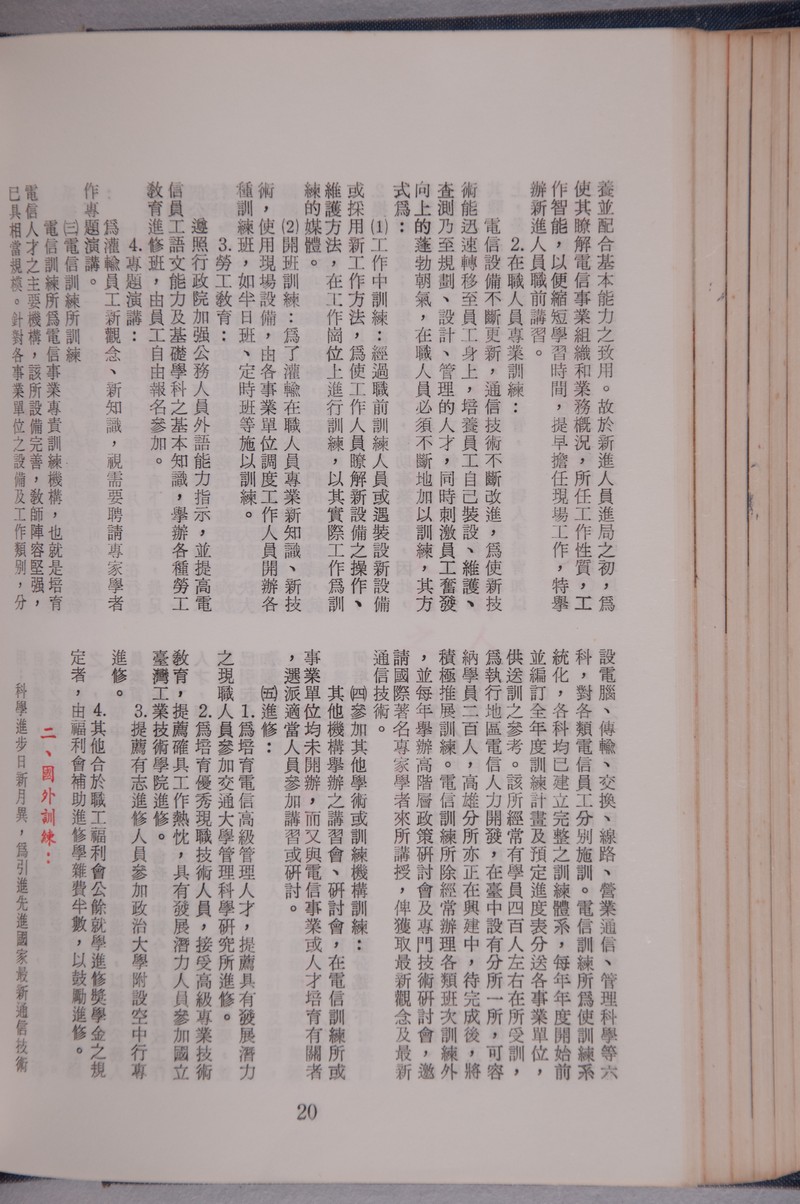 養並配合基本能力之致用。故於新進人員進局之初，爲
使其瞭解電信事業組織和業務概況，所任工作性質，工
作智能，以便縮短學習時間，提早擔任現場工作，特舉
辦新進人員職前講習。
2.在職人員專業訓練：
電信設備不斷更新，通信技術不斷改進，爲使新技
術能迅速轉移至員工身上，培養員工自己裝設、維護、
查測乃至規劃、設計、管理的人才，同時刺激員工奮發
向上的蓬勃朝氣，在職人員必須不斷地加以訓練，其方
式爲：
⑴工作中訓練：經過職前訓練人員或遇裝設新設備
或採用新工作方法，爲使工作人員瞭解新設備之操作、
維護方法，在工作崗位上進行訓練，以其實際工作爲訓
練的媒體。
⑵開班訓練：爲了灌輸在職人員專業新知識、新技
術，使用現場設備，由各事業單位調度工作人員開辦各
種訓練班，如半日班、定時班等施以訓練。
3.勞工教育：
遵照行政院加强公務人員外語能力指示，並提高電
信員工語文能力及基礎學科之基本知識，舉辦各種勞工
教育進修班，由員工自由報名參加。
4.專題演講：
爲灌輸員工新觀念、新知識，視需要聘請專家學者
作專題演講。
㈢電信訓練所訓練
電信訓練所爲電信事業專責訓練機構，也就是培育
電信人才之主要機構，該所設備完善，教師陣容堅强，
已具相當規模。針對各事業單位之設備及工作類別，分
設電腦、傳輸、交換、線路、營業通信、管理科學等六
科，對各類電信員工分別施訓。電信訓練所爲使訓練系
統化，各科均已建立完整之訓練體系，每年年度開始前
並編訂全年度訓練計畫及預定進度表分送各事業單位，
供送訓之參考。該所經常有學員四百人左右在所受訓，
爲執行地區電信人力開發，在臺中設有分所一所，可容
納學員二百人，高雄分所亦正在興建中，待完成後，將
積極推展訓練。電信訓練所除經常辦理各類班次訓練外
，並每年舉辦高階層政策研討會及專門技術研討會，邀
請國際著名專家學者來所講授，俾獲取最新觀念及最新
通信技術。
㈣參加其他學術或訓練機構訓練：
其他機構舉辦之講習會、研討會，在電信訓練所或
事業單位均未開辦，而又與電信事業或人才培育有關者
，選派適當人員參加講習或研討。
㈤進修：
1.爲培育電信高級管理人才，提薦具有發展潛力
之現職人員參加交通大學管理科學研究所進修。
2.爲培育優秀現職技術人員，接受高級專業技術
教育，提薦確具工作熱忱，具有發展潛力人員參加國立
臺灣工業技術學院進修。
3.提薦有志進修人員參加政治大學附設空中行專
進修。
4.其他合於職工福利會公餘就學進修獎學金之規
定者，由福利會補助進修學雜費半數，以鼓勵進修。
二、國外訓練：
科學進步日新月異，爲引進先進國家最新通信技術
20